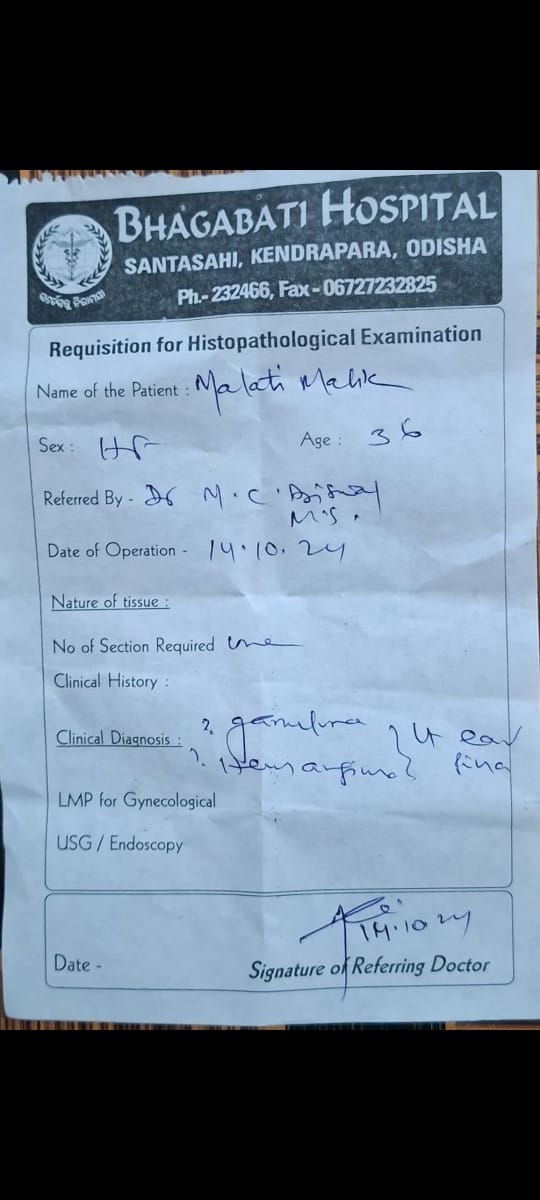 BHAGABATI HOSPITAL
SANTASAHI, KENDRAPARA, ODISHA
Ph.- 232466, Fax - 06727232825
Requisition for Histopathological Examination
Name of the Patient : Malati Malik
Sex :
Age : 36
Referred By - Dr M.C.
M.S.
Date of Operation - 14.10.24
Nature of tissue :
No of Section Required one
Clinical History :
Clinical Diagnosis : ? ear
?
LMP for Gynecological
USG / Endoscopy
14.10.24
Date -
Signature of Referring Doctor